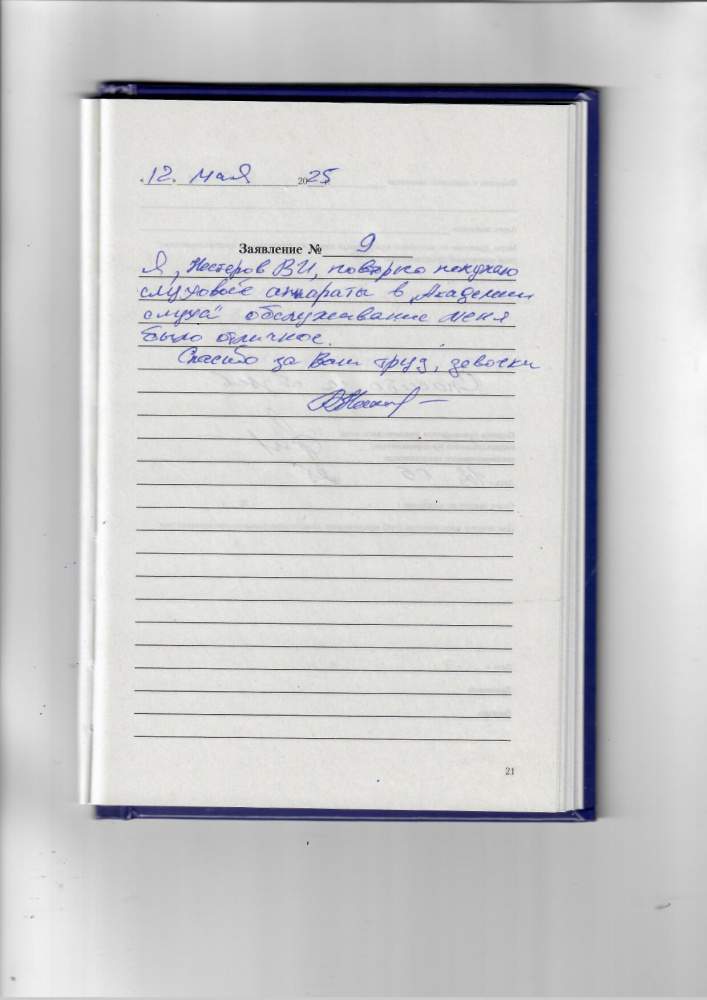 12. мая 2025
Заявление № 9
Я, Нестеров В И, повторно покупаю
слуховые аппараты в „Академии
слуха" обслуживание меня
было отличное.
Спасибо за Ваш труд, девочки
21